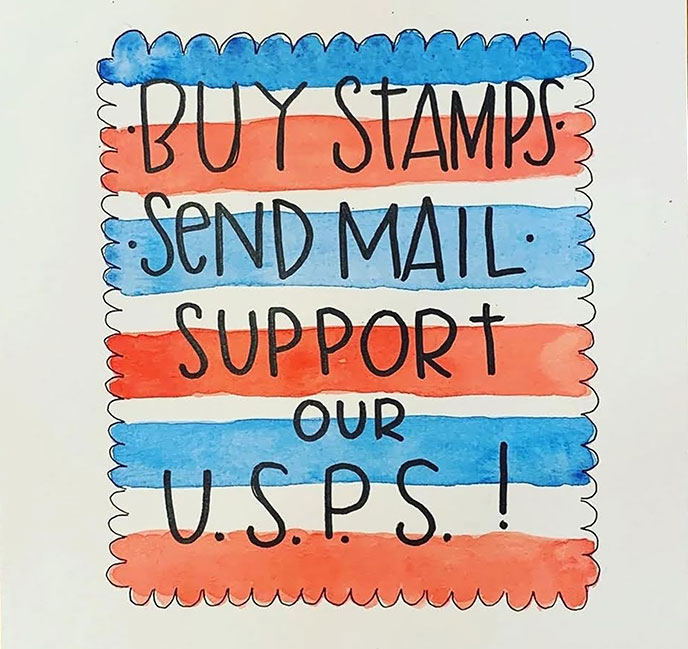 ·BUY STAMPS·
·SeND MAIL·
SUPPORt
OUR
U.S.P.S.!